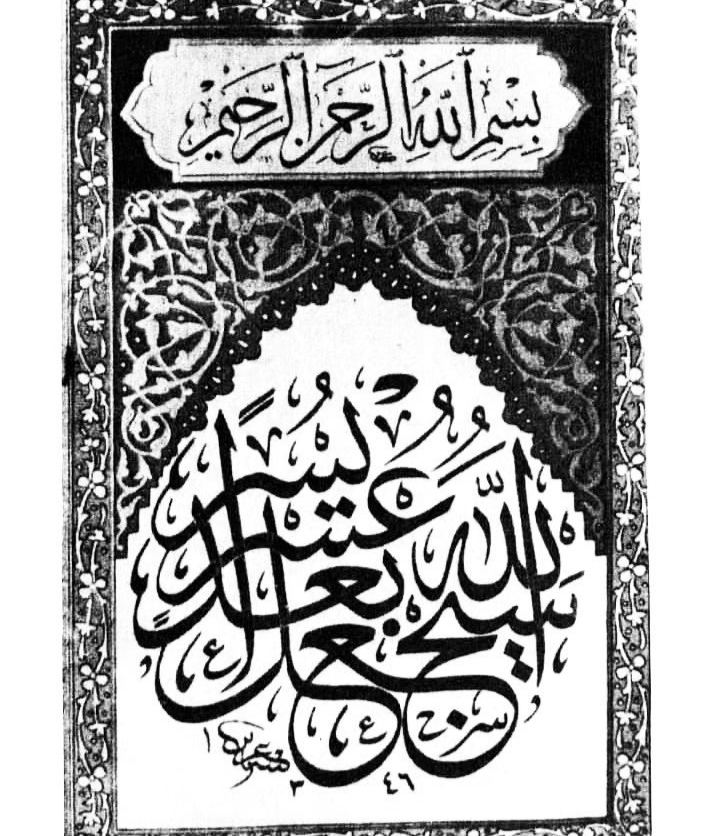 بِسْمِ اللَّهِ الرَّحْمَنِ الرَّحِيمِ
سَيَجْعَلُ اللَّهُ بَعْدَ عُسْرٍ يُسْرًا